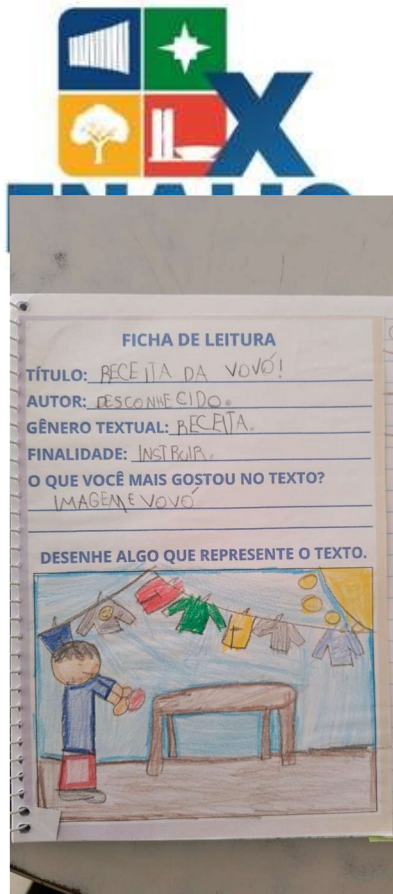 FICHA DE LEITURA
TÍTULO: RECEITA DA VOVÓ!
AUTOR: DESCONHECIDO.
GÊNERO TEXTUAL: RECEITA.
FINALIDADE: INSTRUIR.
O QUE VOCÊ MAIS GOSTOU NO TEXTO?
IMAGEM E VOVÓ
DESENHE ALGO QUE REPRESENTE O TEXTO.